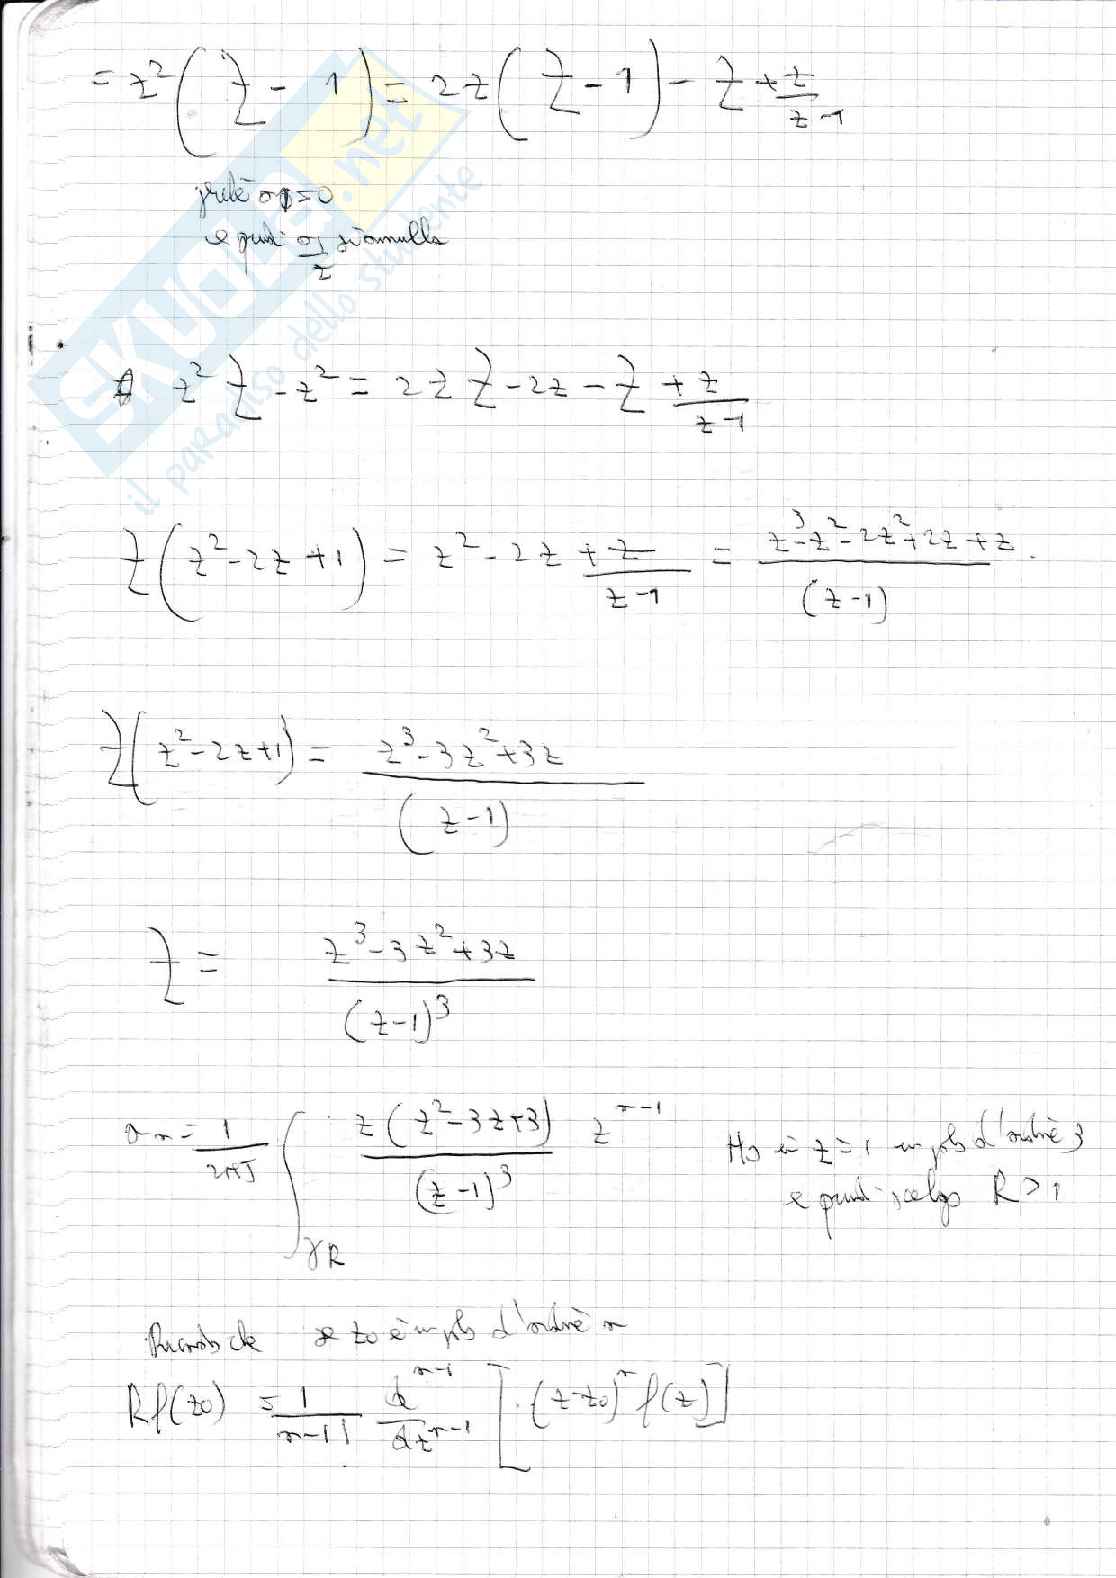 = z² ( Z - 1 ) = 2z ( Z - 1 ) - Z + z/(z-1)
a1 = 0
e quindi a1/z si annulla
z² Z - z² = 2z Z - 2z - Z + z/(z-1)
Z ( z² - 2z + 1 ) = z² - 2z + z/(z-1) = (z³ - z² - 2z² + 2z + z)/(z-1)
Z ( z² - 2z + 1 ) = (z³ - 3z² + 3z)/(z-1)
Z = (z³ - 3z² + 3z)/(z-1)³
an = 1/(2πJ) ∫γR z(z² - 3z + 3)/(z-1)³ z^(n-1) Ho in z = 1 un polo d'ordine 3
e quindi scelgo R > 1
Ricordo che se z0 è un polo d'ordine n
Rf(z0) = 1/(n-1)! d^(n-1)/dz^(n-1) [ (z-z0)^n f(z) ]
SKUOLA.net
il paradiso dello studente